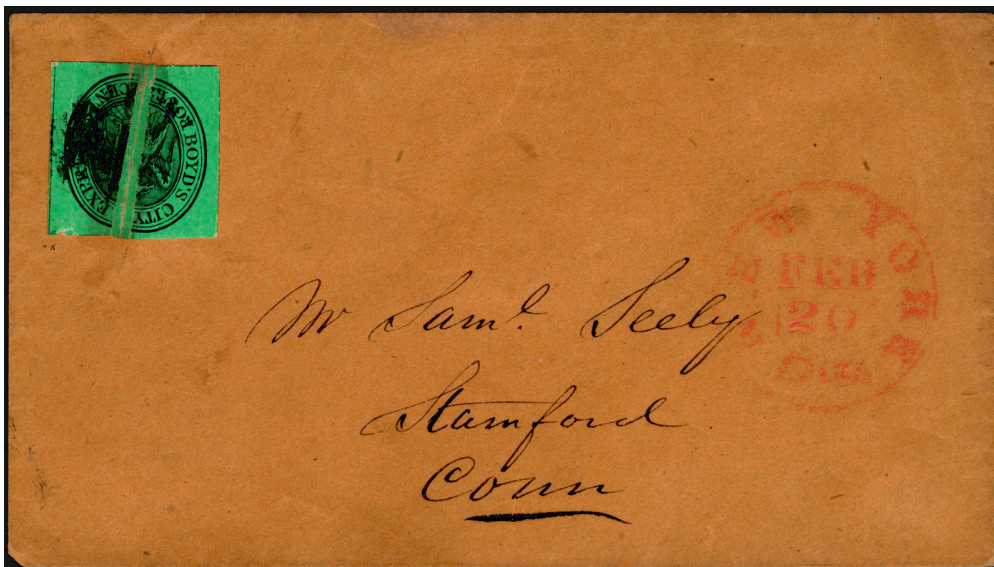 BOYD'S CITY EXPRESS POST
NEW YORK
FEB
20
5 cts
Mr Saml. Seely
Stamford
Conn